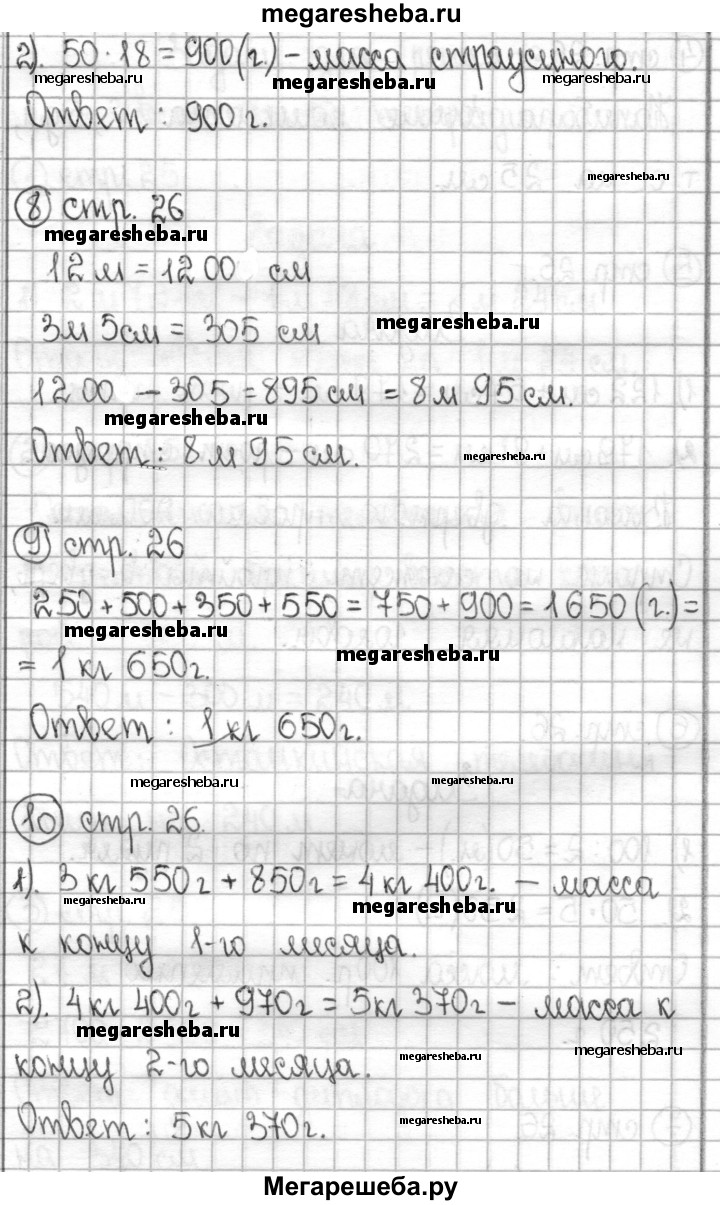 megaresheba.ru
2). 50·18=900(г.)-масса страусиного.
megaresheba.ru megaresheba.ru megaresheba.ru
Ответ: 900г.
megaresheba.ru
8 стр. 26
megaresheba.ru
12м=1200 см
3м 5см = 305 см
megaresheba.ru
1200 -305=895см=8м 95см.
megaresheba.ru
Ответ: 8м 95см.
megaresheba.ru
9 стр. 26
250+500+350+550=750+900=1650(г.)=
megaresheba.ru
megaresheba.ru
= 1кг 650г.
Ответ: 1кг 650г.
megaresheba.ru megaresheba.ru
10 стр. 26.
1). 3кг 550г+850г=4кг 400г. - масса
megaresheba.ru
megaresheba.ru
к концу 1-го месяца.
2). 4кг 400г+970г=5кг 370г- масса к
megaresheba.ru
megaresheba.ru megaresheba.ru
концу 2-го месяца.
Ответ: 5кг 370г.
megaresheba.ru
Мегарешеба.ру